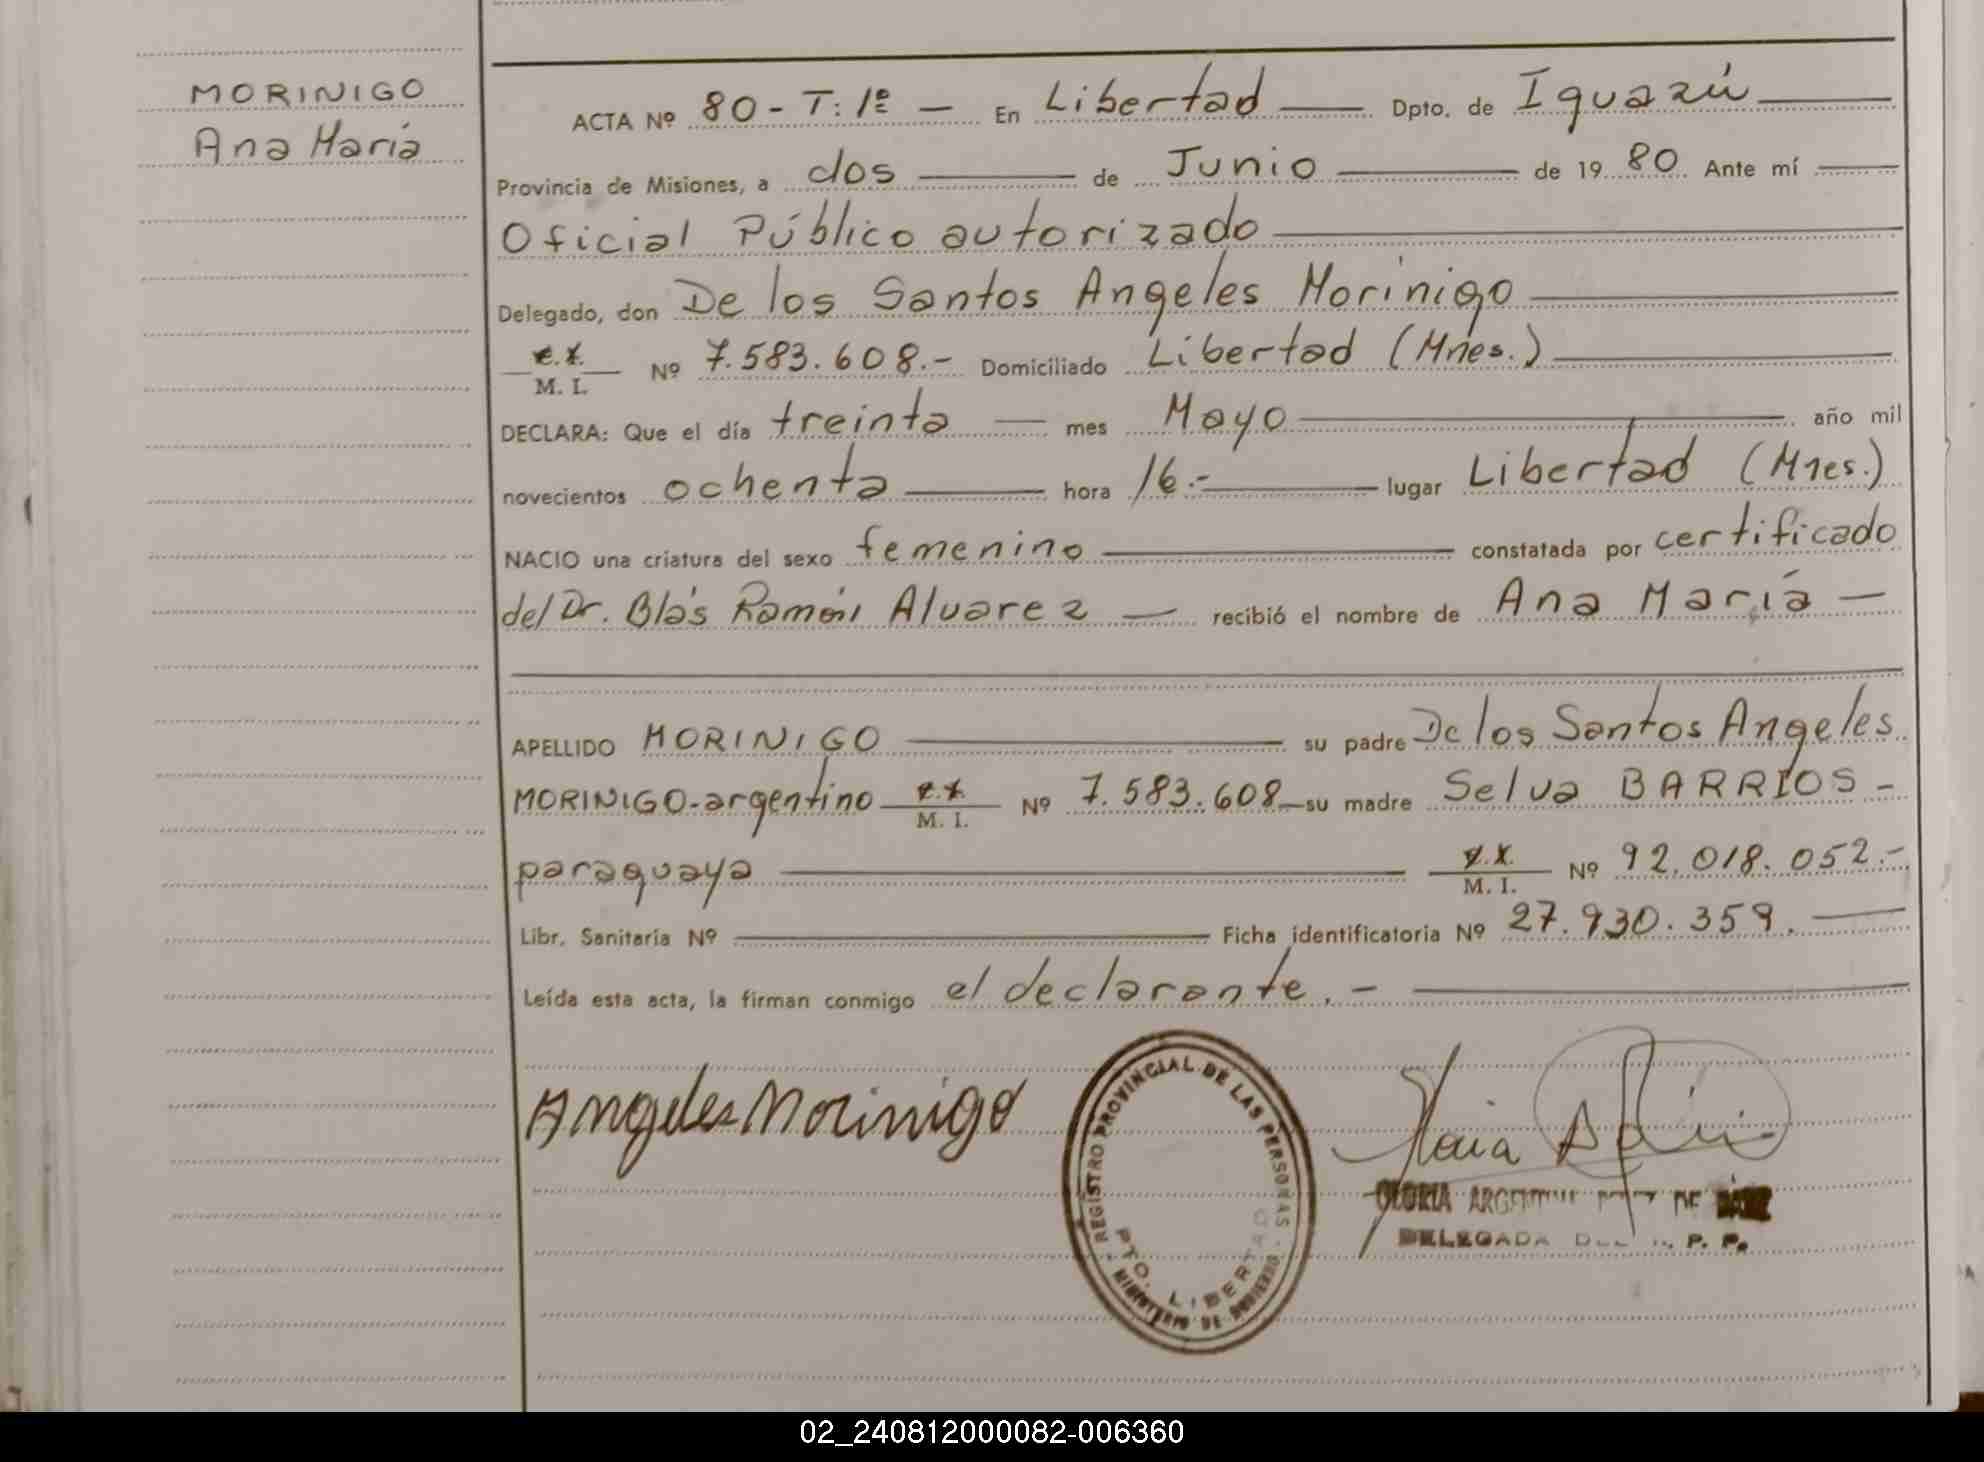 MORINIGO
Ana María
ACTA Nº 80 - T: 1º — En Libertad — Dpto. de Iguazú —
Provincia de Misiones, a dos — de Junio — de 19 80 Ante mí —
Oficial Público autorizado —
Delegado, don De los Santos Angeles Morinigo —
M. I. Nº 7.583.608.- Domiciliado Libertad (Mnes.) —
DECLARA: Que el día treinta — mes Mayo — año mil
novecientos ochenta — hora 16.- — lugar Libertad (Mnes.)
NACIO una criatura del sexo femenino — constatada por certificado
del Dr. Blás Ramón Alvarez — recibió el nombre de Ana María —
APELLIDO MORINIGO — su padre De los Santos Angeles
MORINIGO-argentino M. I. Nº 7.583.608— su madre Selva BARRIOS -
paraguaya — M. I. Nº 92.018.052.-
Libr. Sanitaria Nº — Ficha identificatoria Nº 27.930.359. —
Leída esta acta, la firman conmigo el declarante. - —
Angeles Morinigo
REGISTRO PROVINCIAL DE LAS PERSONAS
PTO. LIBERTAD
MINISTERIO DE GOBIERNO
GLORIA DE
DELEGADA P. P.
02_240812000082-006360